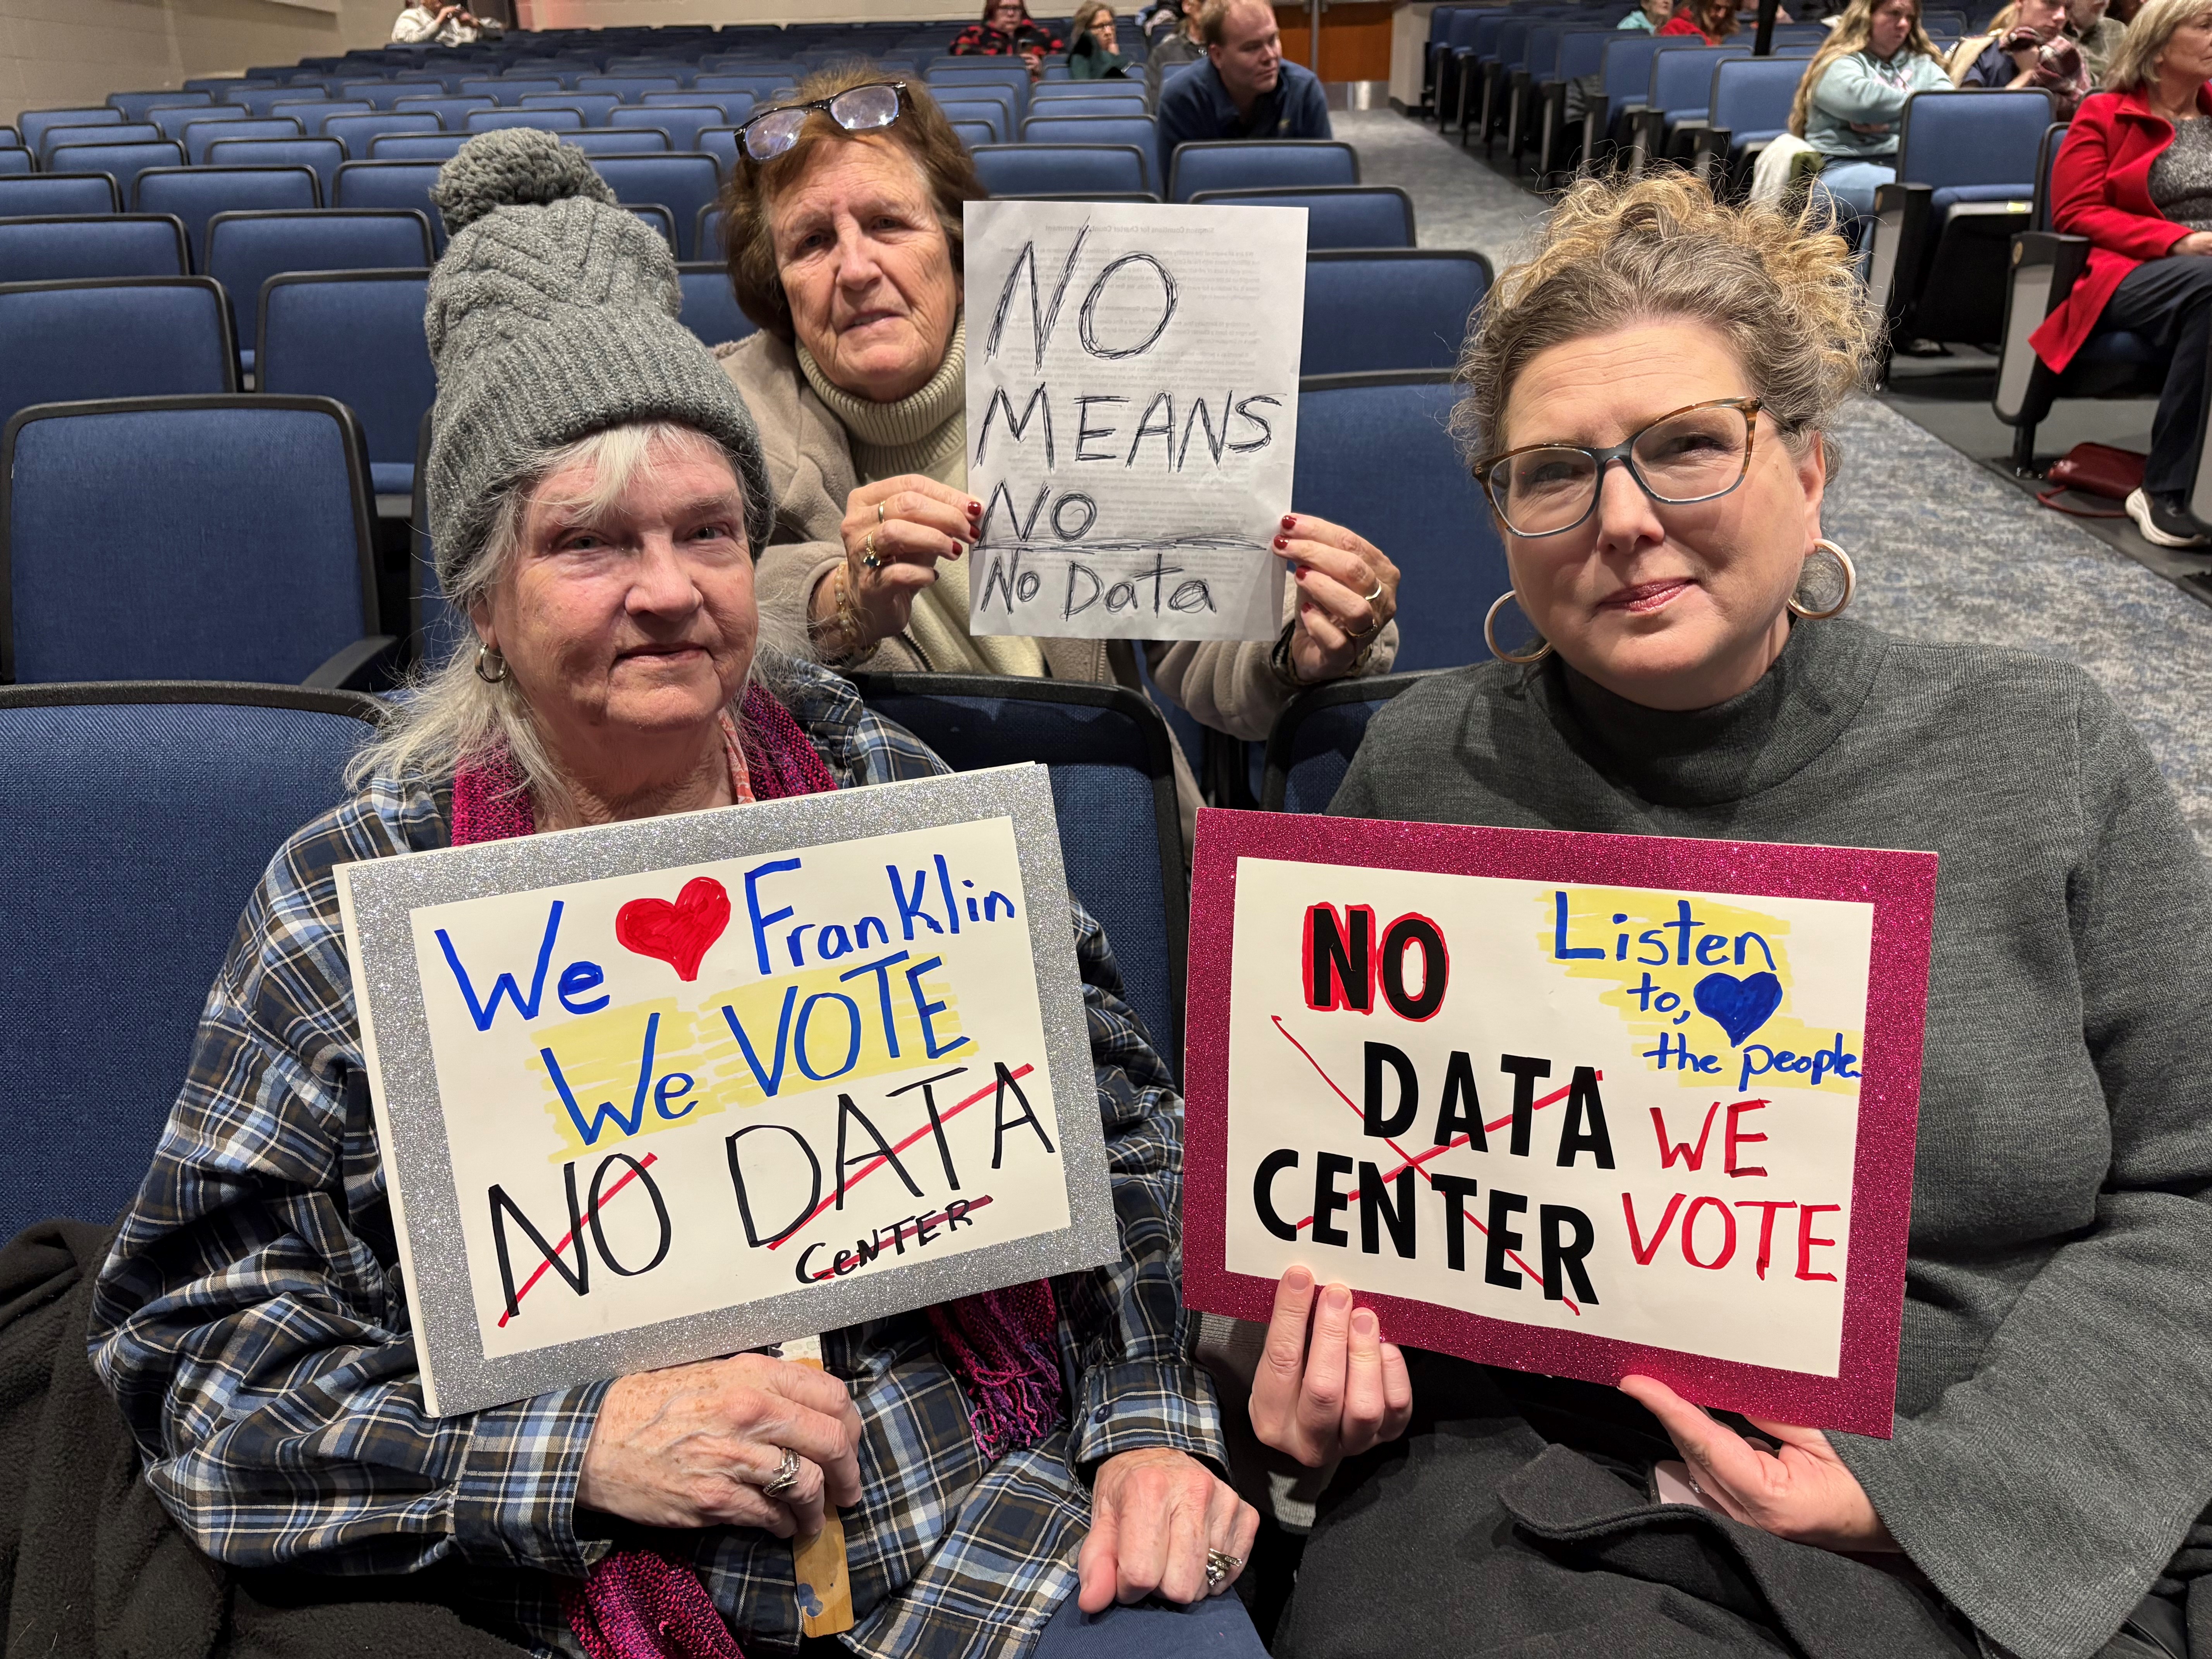 NO
MEANS
NO
No Data
We ❤ Franklin
We VOTE
NO DATA
CeNTER
NO
DATA
CENTER
Listen
to,
the people.
WE
VOTE